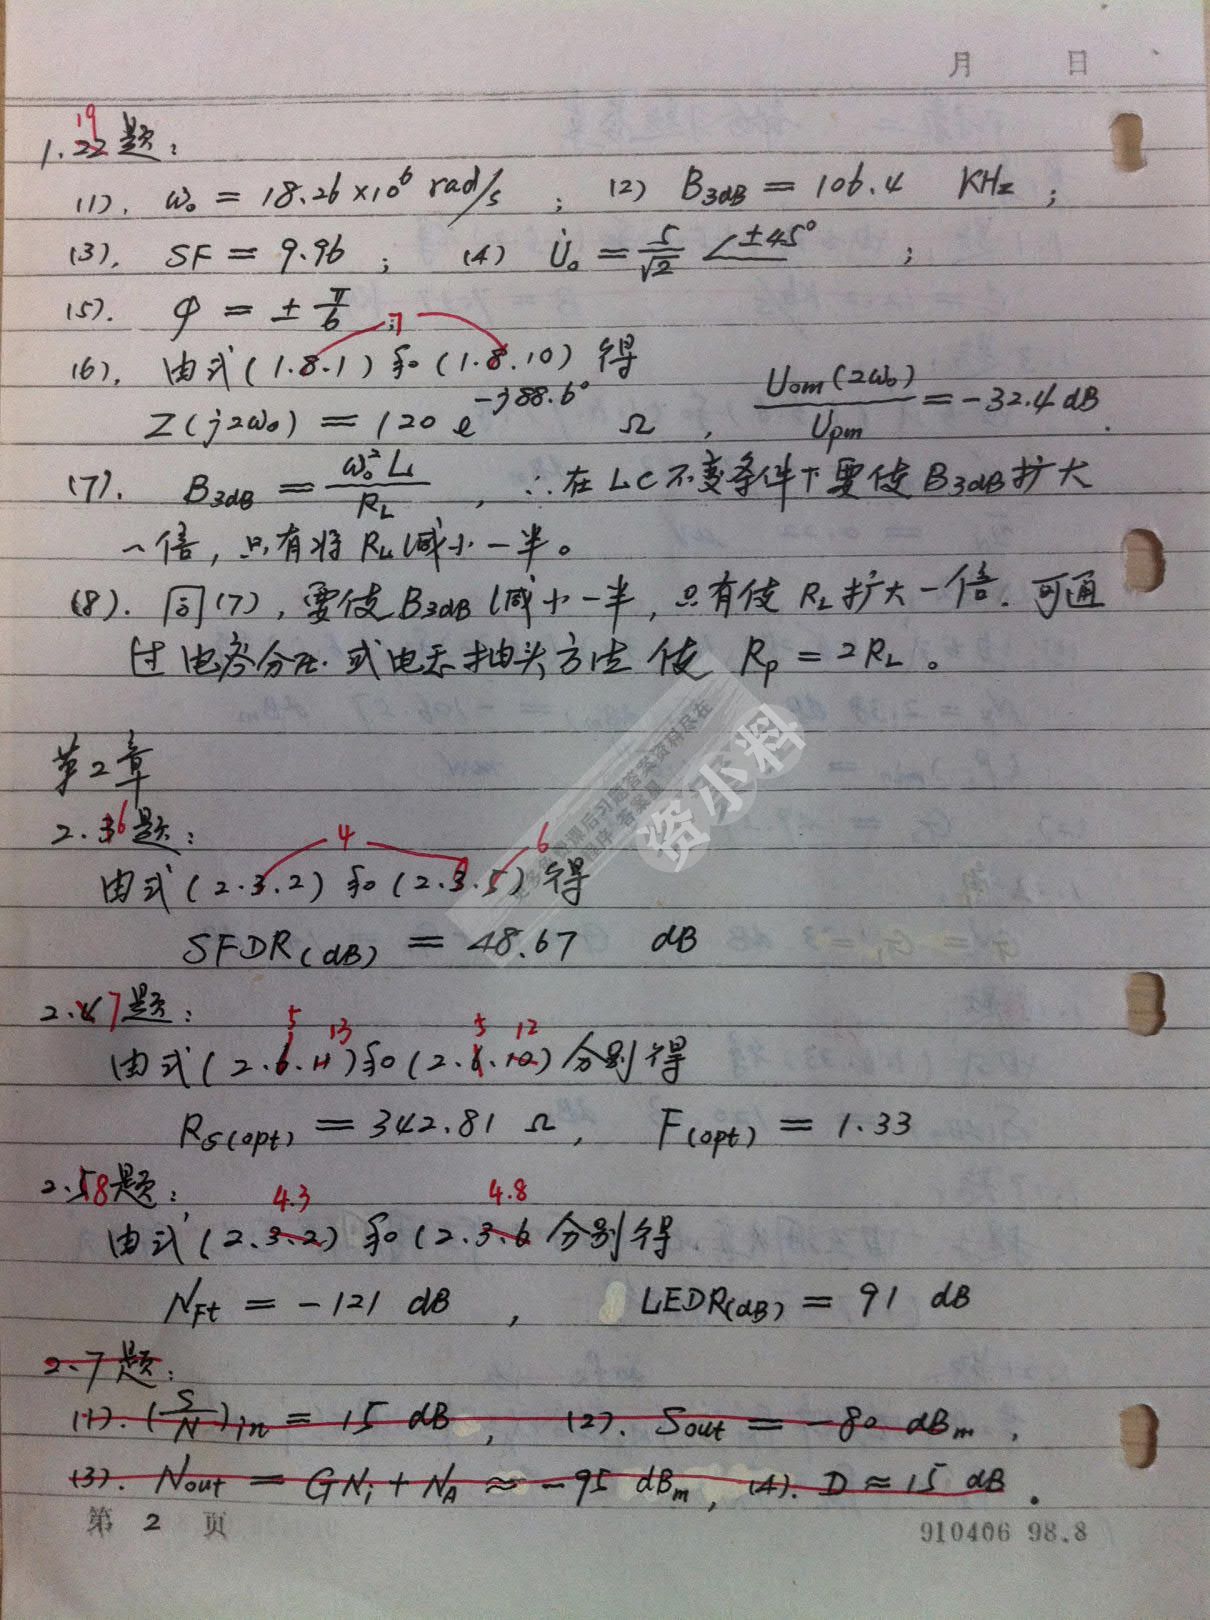 月 日
19
1.22题:
(1). ω₀ = 18.26×10⁶ rad/s ; (2) B3dB = 106.4 KHz ;
(3). SF = 9.96 ; (4) U̇₀ = 5/√2 ∠±45° ;
(5). φ = ± π/6 ;
7
(6). 由式(1.8.1)和(1.8.10)得
Z(j2ω₀) = 120 e^-j88.6° Ω , Uom(2ω₀)/Upm = -32.4 dB.
(7). B3dB = ω₀²L/RL , ∴在LC不变条件下要使B3dB扩大
一倍,只有将RL减小一半。
(8). 同(7),要使B3dB减小一半,只有使RL扩大一倍.可通
过电容分压.或电感抽头方法使 Rp = 2RL。
第2章
2.36题:
4 6
由式(2.3.2)和(2.3.5)得
SFDR(dB) = 48.67 dB
2.47题:
5 13 5 12
由式(2.6.11)和(2.6.10)分别得
RS(opt) = 342.81 Ω, F(opt) = 1.33
2.58题:
4.3 4.8
由式(2.3.2)和(2.3.6 分别得
NFt = -121 dB , LEDR(dB) = 91 dB
2.7题:
(1). (S/N)in = 15 dB , (2). Sout = -80 dBm ,
(3). Nout = GNi + NA ≈ -95 dBm, (4). D ≈ 15 dB.
第 2 页 910406 98.8
资小料